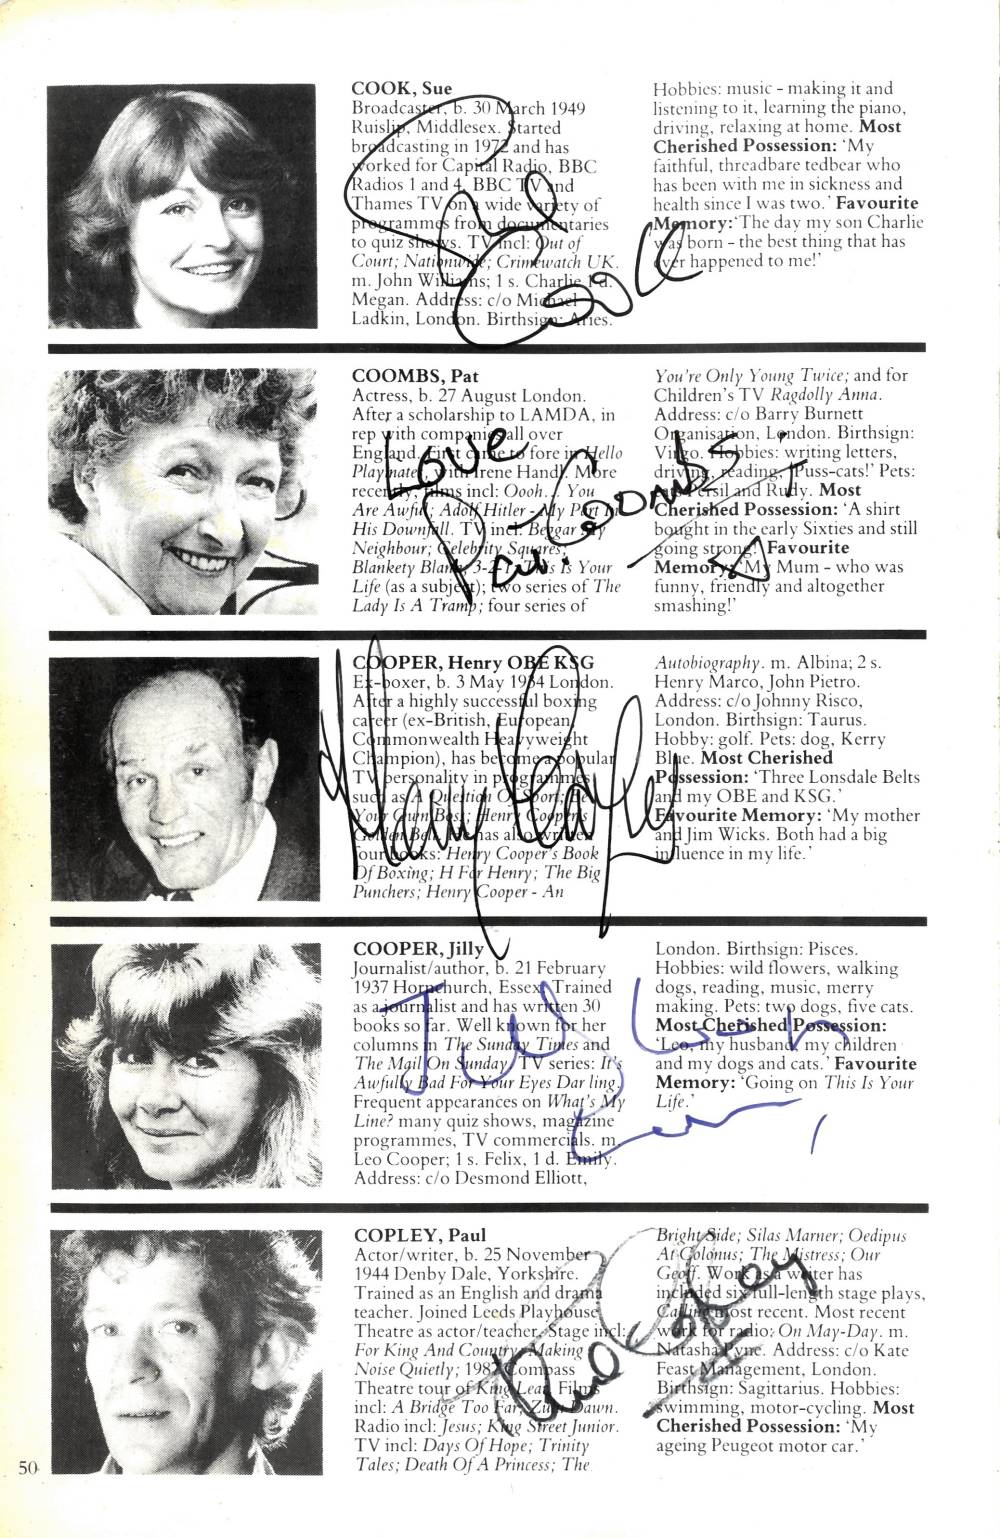 COOK, Sue
Broadcaster, b. 30 March 1949
Ruislip, Middlesex. Started
broadcasting in 1972 and has
worked for Capital Radio, BBC
Radios 1 and 4, BBC TV and
Thames TV on a wide variety of
programmes from documentaries
to quiz shows. TV incl: Out of
Court; Nationwide; Crimewatch UK.
m. John Williams; 1 s. Charlie 1 d.
Megan. Address: c/o Michael
Ladkin, London. Birthsign: Aries.
Hobbies: music - making it and
listening to it, learning the piano,
driving, relaxing at home. Most
Cherished Possession: ‘My
faithful, threadbare tedbear who
has been with me in sickness and
health since I was two.’ Favourite
Memory: ‘The day my son Charlie
was born - the best thing that has
ever happened to me!’
Sue Cook
COOMBS, Pat
Actress, b. 27 August London.
After a scholarship to LAMDA, in
rep with companies all over
England. First came to fore in Hello
Playmates, with Irene Handl. More
recently, films incl: Oooh... You
Are Awful; Adolf Hitler - My Part In
His Downfall. TV incl: Beggar My
Neighbour; Celebrity Squares;
Blankety Blank; 3-2-1; This Is Your
Life (as a subject); two series of The
Lady Is A Tramp; four series of
You're Only Young Twice; and for
Children's TV Ragdolly Anna.
Address: c/o Barry Burnett
Organisation, London. Birthsign:
Virgo. Hobbies: writing letters,
driving, reading, ‘Puss-cats!’ Pets:
cats Persil and Rudy. Most
Cherished Possession: ‘A shirt
bought in the early Sixties and still
going strong!’ Favourite
Memory: ‘My Mum - who was
funny, friendly and altogether
smashing!’
Love
Pat Coombs
COOPER, Henry OBE KSG
Ex-boxer, b. 3 May 1934 London.
After a highly successful boxing
career (ex-British, European,
Commonwealth Heavyweight
Champion), has become a popular
TV personality in programmes
such as A Question Of Sport; Be
Your Own Boss; Henry Cooper's
Golden Belt. He has also written
four books: Henry Cooper's Book
Of Boxing; H For Henry; The Big
Punchers; Henry Cooper - An
Autobiography. m. Albina; 2 s.
Henry Marco, John Pietro.
Address: c/o Johnny Risco,
London. Birthsign: Taurus.
Hobby: golf. Pets: dog, Kerry
Blue. Most Cherished
Possession: ‘Three Lonsdale Belts
and my OBE and KSG.’
Favourite Memory: ‘My mother
and Jim Wicks. Both had a big
influence in my life.’
Henry Cooper
COOPER, Jilly
Journalist/author, b. 21 February
1937 Hornchurch, Essex. Trained
as a journalist and has written 30
books so far. Well known for her
columns in The Sunday Times and
The Mail On Sunday. TV series: It's
Awfully Bad For Your Eyes Darling.
Frequent appearances on What's My
Line? many quiz shows, magazine
programmes, TV commercials. m.
Leo Cooper; 1 s. Felix, 1 d. Emily.
Address: c/o Desmond Elliott,
London. Birthsign: Pisces.
Hobbies: wild flowers, walking
dogs, reading, music, merry
making. Pets: two dogs, five cats.
Most Cherished Possession:
‘Leo, my husband, my children
and my dogs and cats.’ Favourite
Memory: ‘Going on This Is Your
Life.’
Jilly Cooper
COPLEY, Paul
Actor/writer, b. 25 November
1944 Denby Dale, Yorkshire.
Trained as an English and drama
teacher. Joined Leeds Playhouse
Theatre as actor/teacher. Stage incl:
For King And Country; Making
Noise Quietly; 1982 Compass
Theatre tour of King Lear. Films
incl: A Bridge Too Far; Zulu Dawn.
Radio incl: Jesus; King Street Junior.
TV incl: Days Of Hope; Trinity
Tales; Death Of A Princess; The
Bright Side; Silas Marner; Oedipus
At Colonus; The Mistress; Our
Geoff. Work as a writer has
included six full-length stage plays,
Calling most recent. Most recent
work for radio: On May-Day. m.
Natasha Pyne. Address: c/o Kate
Feast Management, London.
Birthsign: Sagittarius. Hobbies:
swimming, motor-cycling. Most
Cherished Possession: ‘My
ageing Peugeot motor car.’
Paul Copley
50